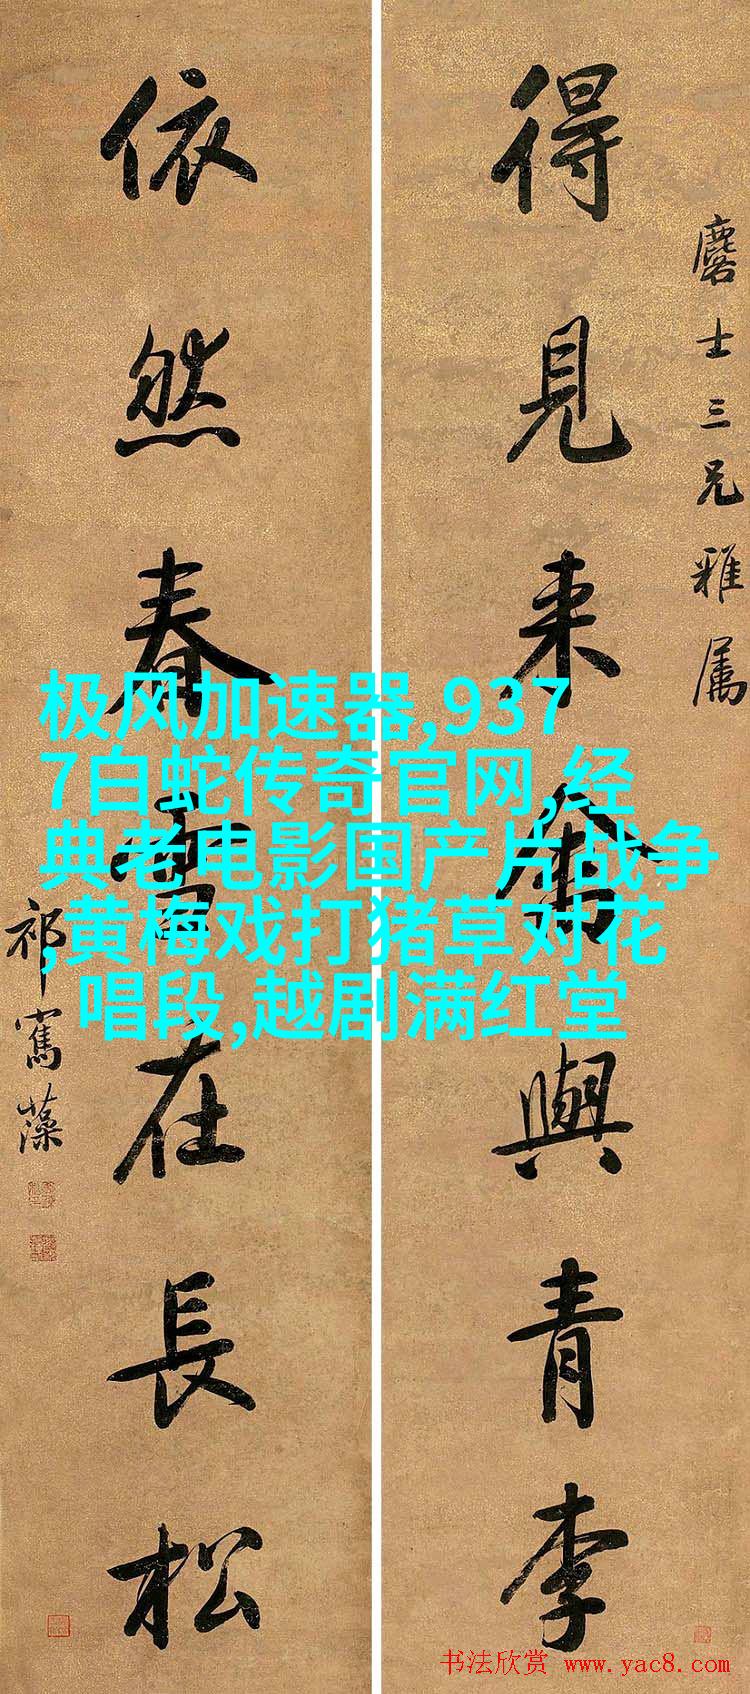 麐士三兄雅属
得見来禽與青李
依然春雪在長松
祁寯藻
极风加速器,937
7白蛇传奇官网,经
典老电影国产片战争
,黄梅戏打猪草对花
唱段,越剧满红堂
书法欣赏 www.yac8.com